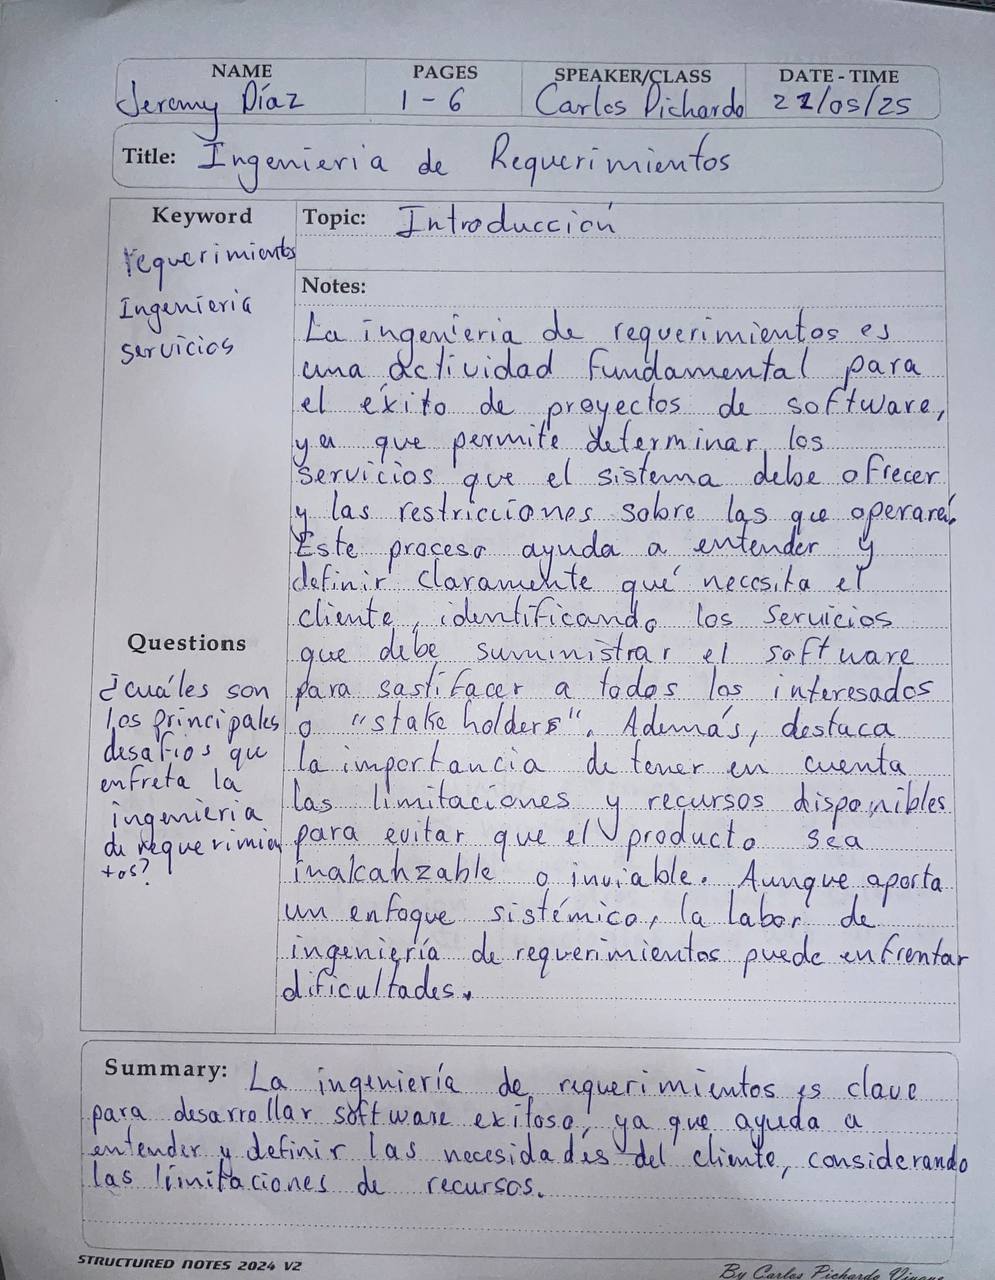 NAME PAGES SPEAKER/CLASS DATE - TIME
Jeremy Díaz 1 - 6 Carlos Pichardo 22/05/25
Title: Ingenieria de Requerimientos
Keyword
requerimientos
Ingenieria
servicios
Topic: Introducción
Notes:
La ingenieria de requerimientos es
una actividad fundamental para
el éxito de proyectos de software,
ya que permite determinar los
servicios que el sistema debe ofrecer
y las restricciones sobre las que operará.
Este proceso ayuda a entender y
definir claramente qué necesita el
cliente, identificando los servicios
que debe suministrar el software
para sastifacer a todos los interesados
o "stake holders". Además, destaca
la importancia de tener en cuenta
las limitaciones y recursos disponibles
para evitar que el producto sea
inalcahzable o inviable. Aunque aporta
un enfoque sistémico, la labor de
ingeniería de requerimientos puede enfrentar
dificultades.
Questions
¿cuáles son
los principales
desafios que
enfreta la
ingenieria
de requerimien
tos?
Summary: La ingeniería de requerimientos es clave
para desarrollar software exitoso, ya que ayuda a
entender y definir las necesidades del cliente, considerando
las limitaciones de recursos.
STRUCTURED NOTES 2024 V2
By Carlos Pichardo